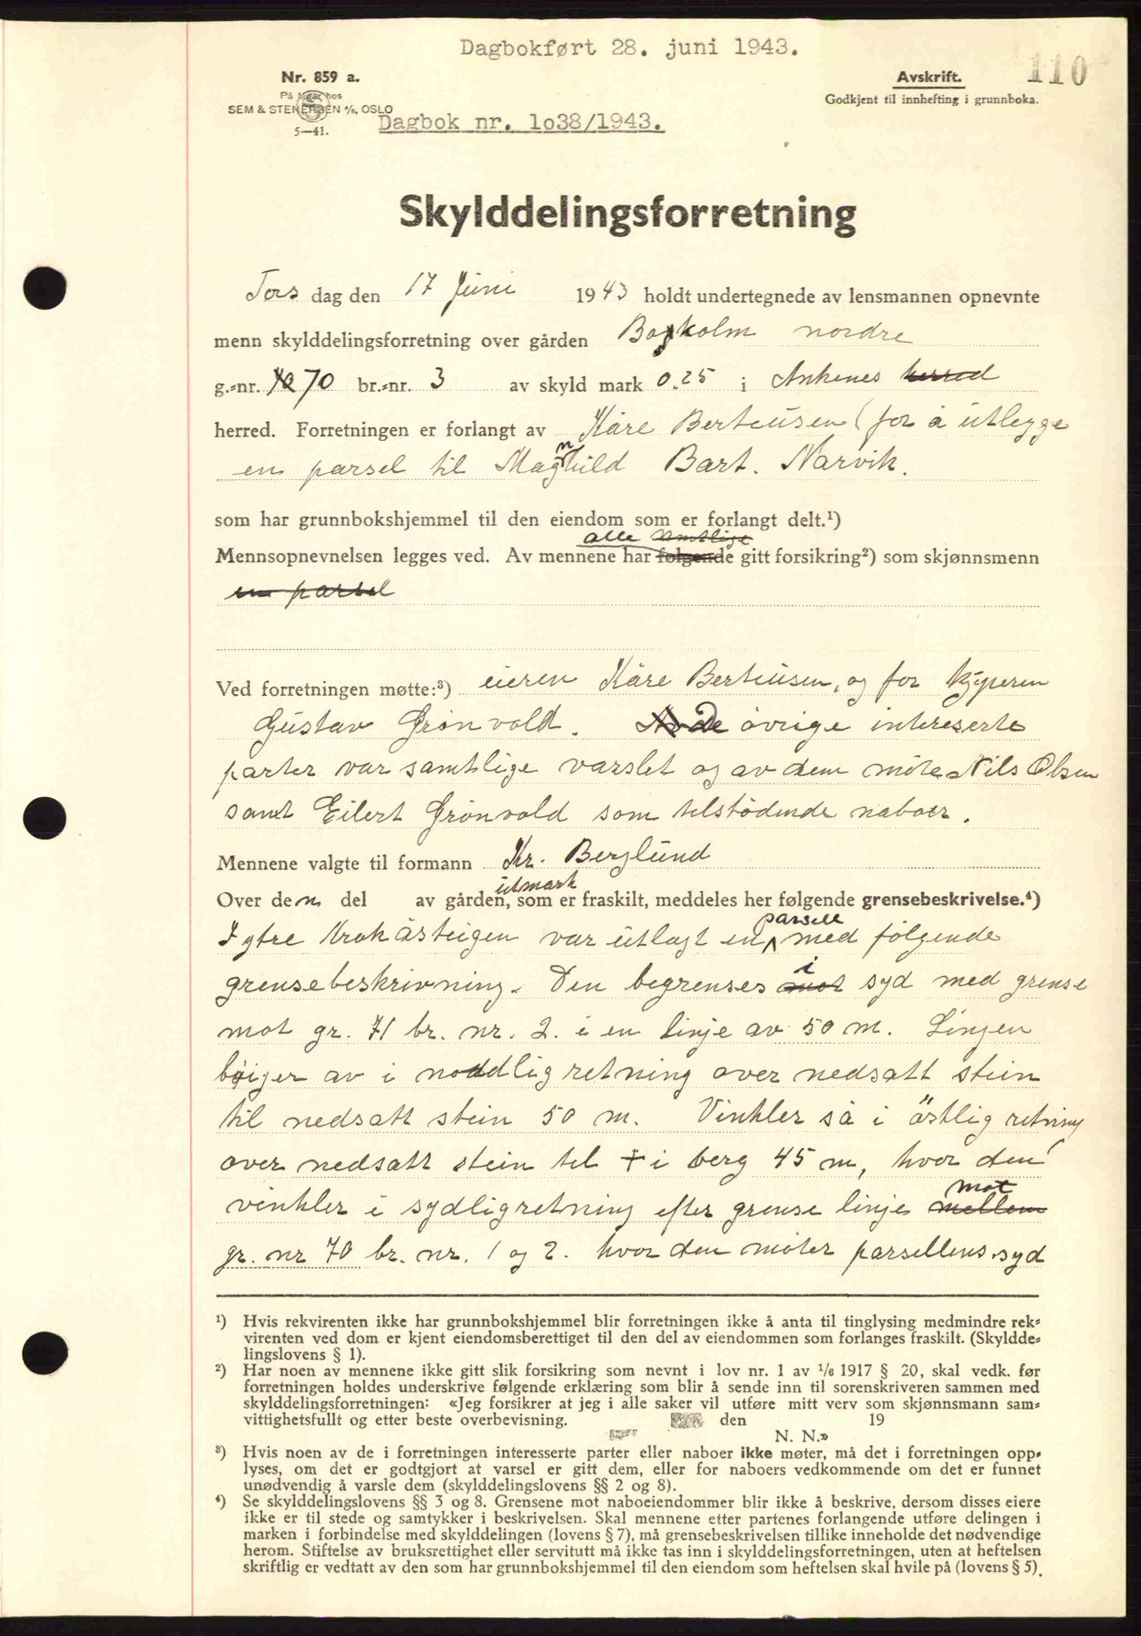 Dagbokført 28. juni 1943.
110
Nr. 859 a.
På lager hos
SEM & STENERSEN A/S, OSLO
5—41.
Avskrift.
Godkjent til innhefting i grunnboka.
Dagbok nr. 1o38/1943.
Skylddelingsforretning
Tors dag den 17 Juni 1943 holdt undertegnede av lensmannen opnevnte
menn skylddelingsforretning over gården Bogholm nordre
g.-nr. 70 br.-nr. 3 av skyld mark 0.25 i Ankenes herred
herred. Forretningen er forlangt av Kåre Berteusen (for å utlegge
en parsel til Magnhild Bart. Narvik.
som har grunnbokshjemmel til den eiendom som er forlangt delt.¹)
alle samtlige
Mennsopnevnelsen legges ved. Av mennene har følgende gitt forsikring²) som skjønnsmenn
en parsel
Ved forretningen møtte:³) eieren Kåre Berteusen, og for kjøperen
Gustav Grønvold. De øvrige intereserte
parter var samtlige varslet og av dem møte Nils Olsen
samt Eilert Grønvold som tilstödende naboer.
Mennene valgte til formann Kr. Berglund
utmark
Over den del av gården, som er fraskilt, meddeles her følgende grensebeskrivelse.⁴)
parsell
I ytre Krokåsteigen var utlagt en med følgende
grensebeskrivning. Den begrenses i syd med grense
mot gr. 71 br. nr. 2. i en linje av 50 m. Linjen
bøiger av i noddlig retning over nedsatt stein
til nedsatt stein 50 m. Vinkler så i östlig retning
over nedsatt stein til + i berg 45 m, hvor den
vinkler i sydlig retning efter grense linje mellem mot
gr. nr 70 br. nr. 1 og 2. hvor den møter parsellens syd
¹) Hvis rekvirenten ikke har grunnbokshjemmel blir forretningen ikke å anta til tinglysing medmindre rek-
virenten ved dom er kjent eiendomsberettiget til den del av eiendommen som forlanges fraskilt. (Skyldde-
lingslovens § 1).
²) Har noen av mennene ikke gitt slik forsikring som nevnt i lov nr. 1 av ¹/₆ 1917 § 20, skal vedk. før
forretningen holdes underskrive følgende erklæring som blir å sende inn til sorenskriveren sammen med
skylddelingsforretningen: «Jeg forsikrer at jeg i alle saker vil utføre mitt verv som skjønnsmann sam-
vittighetsfullt og etter beste overbevisning. den 19
N. N.»
³) Hvis noen av de i forretningen interesserte parter eller naboer ikke møter, må det i forretningen opp-
lyses, om det er godtgjort at varsel er gitt dem, eller for naboers vedkommende om det er funnet
unødvendig å varsle dem (skylddelingslovens §§ 2 og 8).
⁴) Se skylddelingslovens §§ 3 og 8. Grensene mot naboeiendommer blir ikke å beskrive, dersom disses eiere
ikke er til stede og samtykker i beskrivelsen. Skal mennene etter partenes forlangende utføre delingen i
marken i forbindelse med skylddelingen (lovens § 7), må grensebeskrivelsen tillike inneholde det nødvendige
herom. Stiftelse av bruksrettighet eller servitutt må ikke tas inn i skylddelingsforretningen, uten at heftelsen
skriftlig er vedtatt av den som har grunnbokshjemmel til den eiendom som heftelsen skal hvile på (lovens § 5).